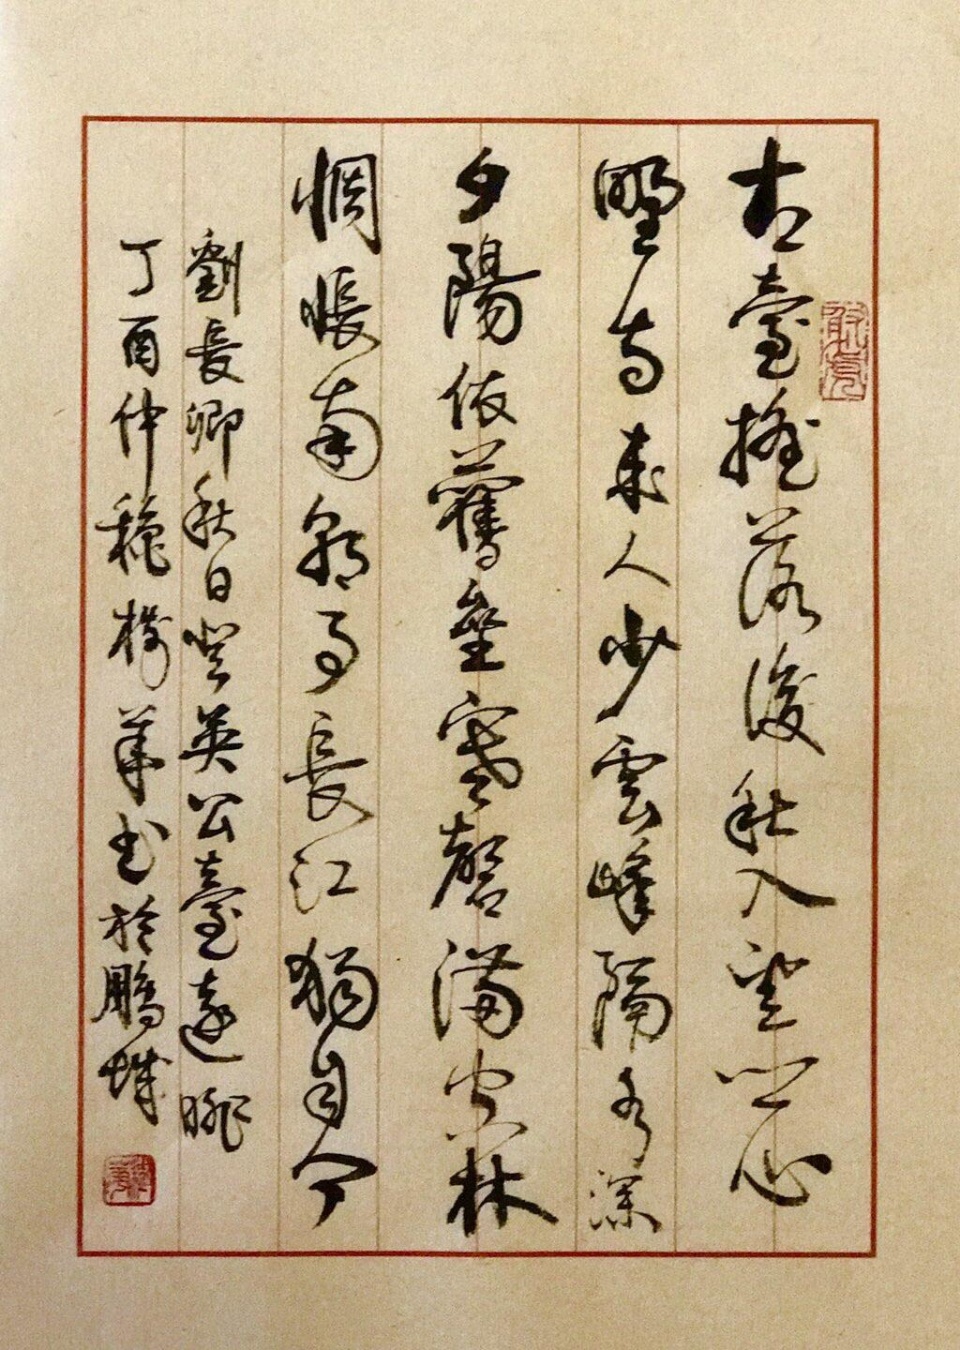 古臺搖落後秋入望鄉心
野寺來人少雲峰隔水深
夕陽依舊壘寒磬滿空林
惆悵南朝事長江獨自今
劉長卿秋日登英公臺遠眺
丁酉仲穐樹華书於鵬城